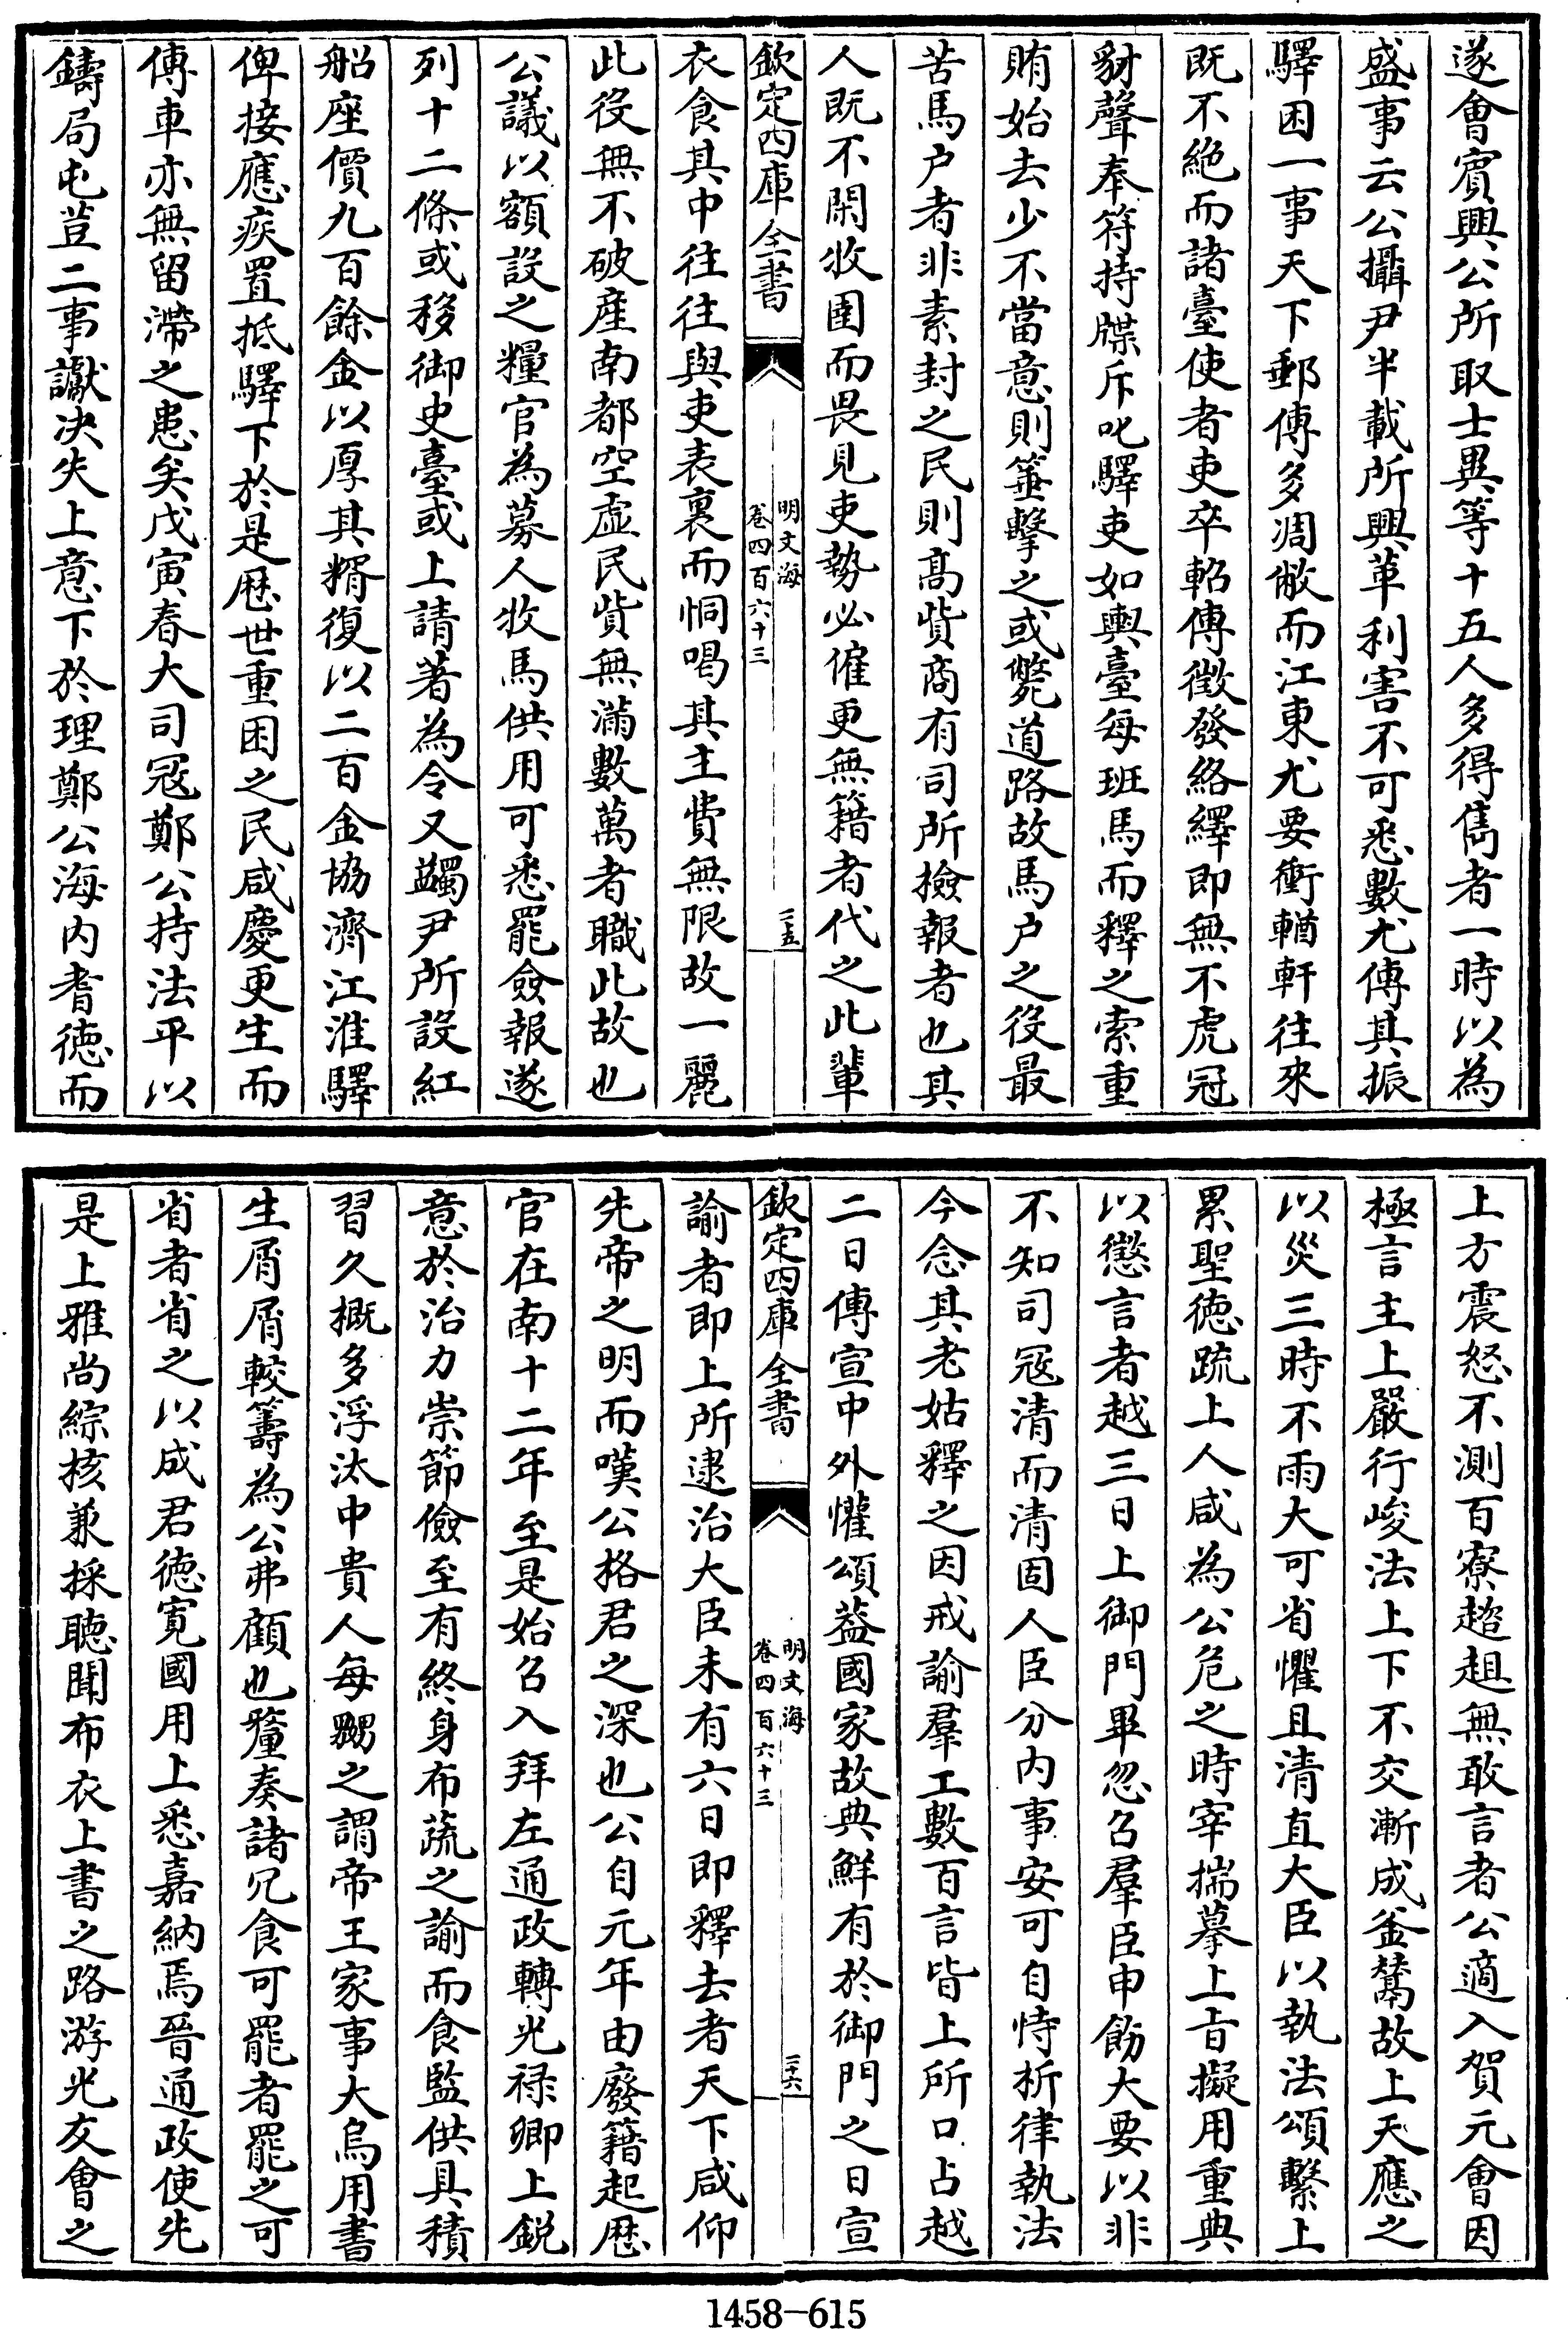 遂會賓興公所取士異等十五人多得雋者一時以為
盛事云公攝尹半載所興革利害不可悉數尤傳其振
驛困一事天下郵傳多凋敝而江東尤要衝輶軒往來
既不絶而諸臺使者吏卒軺傳徵發絡繹即無不虎冠
豺聲奉符持牒斥叱驛吏如輿臺每班馬而釋之索重
賄始去少不當意則箠擊之或斃道路故馬户之役最
苦馬户者非素封之民則髙貲商有司所檢報者也其
人既不閑牧圉而畏見吏勢必僱更無籍者代之此輩
欽定四庫全書
明文海
卷四百六十三
二五
衣食其中往往與吏表裏而恫喝其主費無限故一麗
此役無不破産南都空虛民貲無滿數萬者職此故也
公議以額設之糧官為募人牧馬供用可悉罷僉報遂
列十二條或移御史臺或上請著為令又蠲尹所設紅
船座價九百餘金以厚其糈復以二百金協濟江淮驛
俾接應疾置抵驛下於是歴世重困之民咸慶更生而
傳車亦無留滯之患矣戊寅春大司冦鄭公持法平以
鑄局屯荳二事讞决失上意下於理鄭公海内耆徳而
上方震怒不測百寮趑趄無敢言者公適入賀元會因
極言主上嚴行峻法上下不交漸成釜鬵故上天應之
以災三時不雨大可省懼且清直大臣以執法頌繫上
累聖徳疏上人咸為公危之時宰揣摹上旨擬用重典
以懲言者越三日上御門畢忽召羣臣申飭大要以非
不知司冦清而清固人臣分内事安可自恃析律執法
今念其老姑釋之因戒諭羣工數百言皆上所口占越
二日傳宣中外懽頌葢國家故典鮮有於御門之日宣
欽定四庫全書
明文海
卷四百六十三
二六
諭者即上所逮治大臣未有六日即釋去者天下咸仰
先帝之明而嘆公格君之深也公自元年由廢籍起歴
官在南十二年至是始召入拜左通政轉光禄卿上鋭
意於治力崇節儉至有終身布蔬之諭而食監供具積
習久概多浮汰中貴人每嬲之謂帝王家事大烏用書
生屑屑較籌為公弗顧也釐奏諸冗食可罷者罷之可
省者省之以成君徳寛國用上悉嘉納焉晉通政使先
是上雅尚綜核兼採聴聞布衣上書之路游光友會之
1458-615